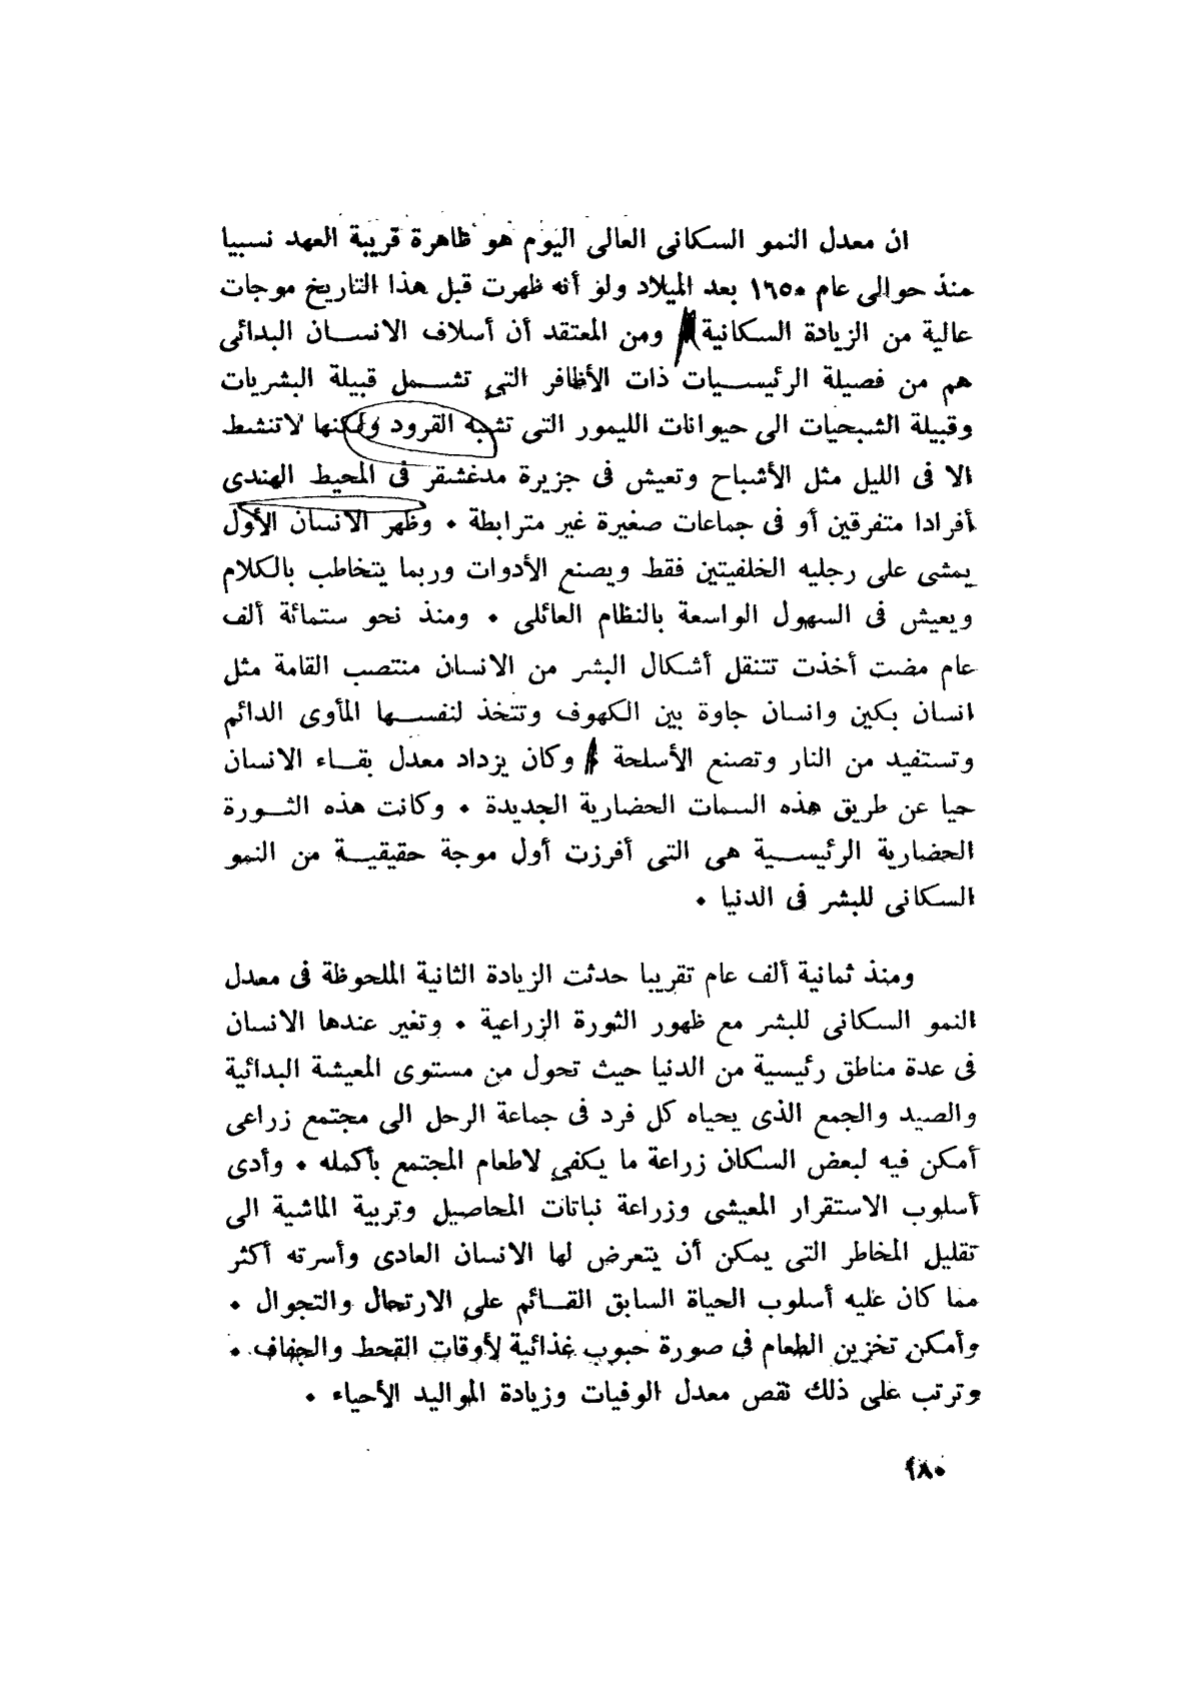 ان معدل النمو السكانى العالى اليوم هو ظاهرة قريبة العهد نسبيا
منذ حوالى عام ١٦٥٠ بعد الميلاد ولو أنه ظهرت قبل هذا التاريخ موجات
عالية من الزيادة السكانية ومن المعتقد أن أسلاف الانسان البدائى
هم من فصيلة الرئيسيات ذات الأظافر التي تشمل قبيلة البشريات
وقبيلة الشبحيات الى حيوانات الليمور التى تشبه القرود ولكنها لاتنشط
الا فى الليل مثل الأشباح وتعيش فى جزيرة مدغشقر فى المحيط الهندى
أفرادا متفرقين أو فى جماعات صغيرة غير مترابطة • وظهر الانسان الأول
يمشى على رجليه الخلفيتين فقط ويصنع الأدوات وربما يتخاطب بالكلام
ويعيش فى السهول الواسعة بالنظام العائلى • ومنذ نحو ستمائة ألف
عام مضت أخذت تتنقل أشكال البشر من الانسان منتصب القامة مثل
انسان بكين وانسان جاوة بين الكهوف وتتخذ لنفسها المأوى الدائم
وتستفيد من النار وتصنع الأسلحة وكان يزداد معدل بقاء الانسان
حيا عن طريق هذه السمات الحضارية الجديدة • وكانت هذه الثورة
الحضارية الرئيسية هى التى أفرزت أول موجة حقيقية من النمو
السكانى للبشر فى الدنيا •
ومنذ ثمانية ألف عام تقريبا حدثت الزيادة الثانية الملحوظة فى معدل
النمو السكانى للبشر مع ظهور الثورة الزراعية • وتغير عندها الانسان
فى عدة مناطق رئيسية من الدنيا حيث تحول من مستوى المعيشة البدائية
والصيد والجمع الذى يحياه كل فرد فى جماعة الرحل الى مجتمع زراعى
أمكن فيه لبعض السكان زراعة ما يكفي لاطعام المجتمع بأكمله • وأدى
أسلوب الاستقرار المعيشى وزراعة نباتات المحاصيل وتربية الماشية الى
تقليل المخاطر التى يمكن أن يتعرض لها الانسان العادى وأسرته أكثر
مما كان عليه أسلوب الحياة السابق القائم على الارتحال والتجوال •
وأمكن تخزين الطعام فى صورة حبوب غذائية لأوقات القحط والجفاف •
وترتب على ذلك نقص معدل الوفيات وزيادة المواليد الأحياء •